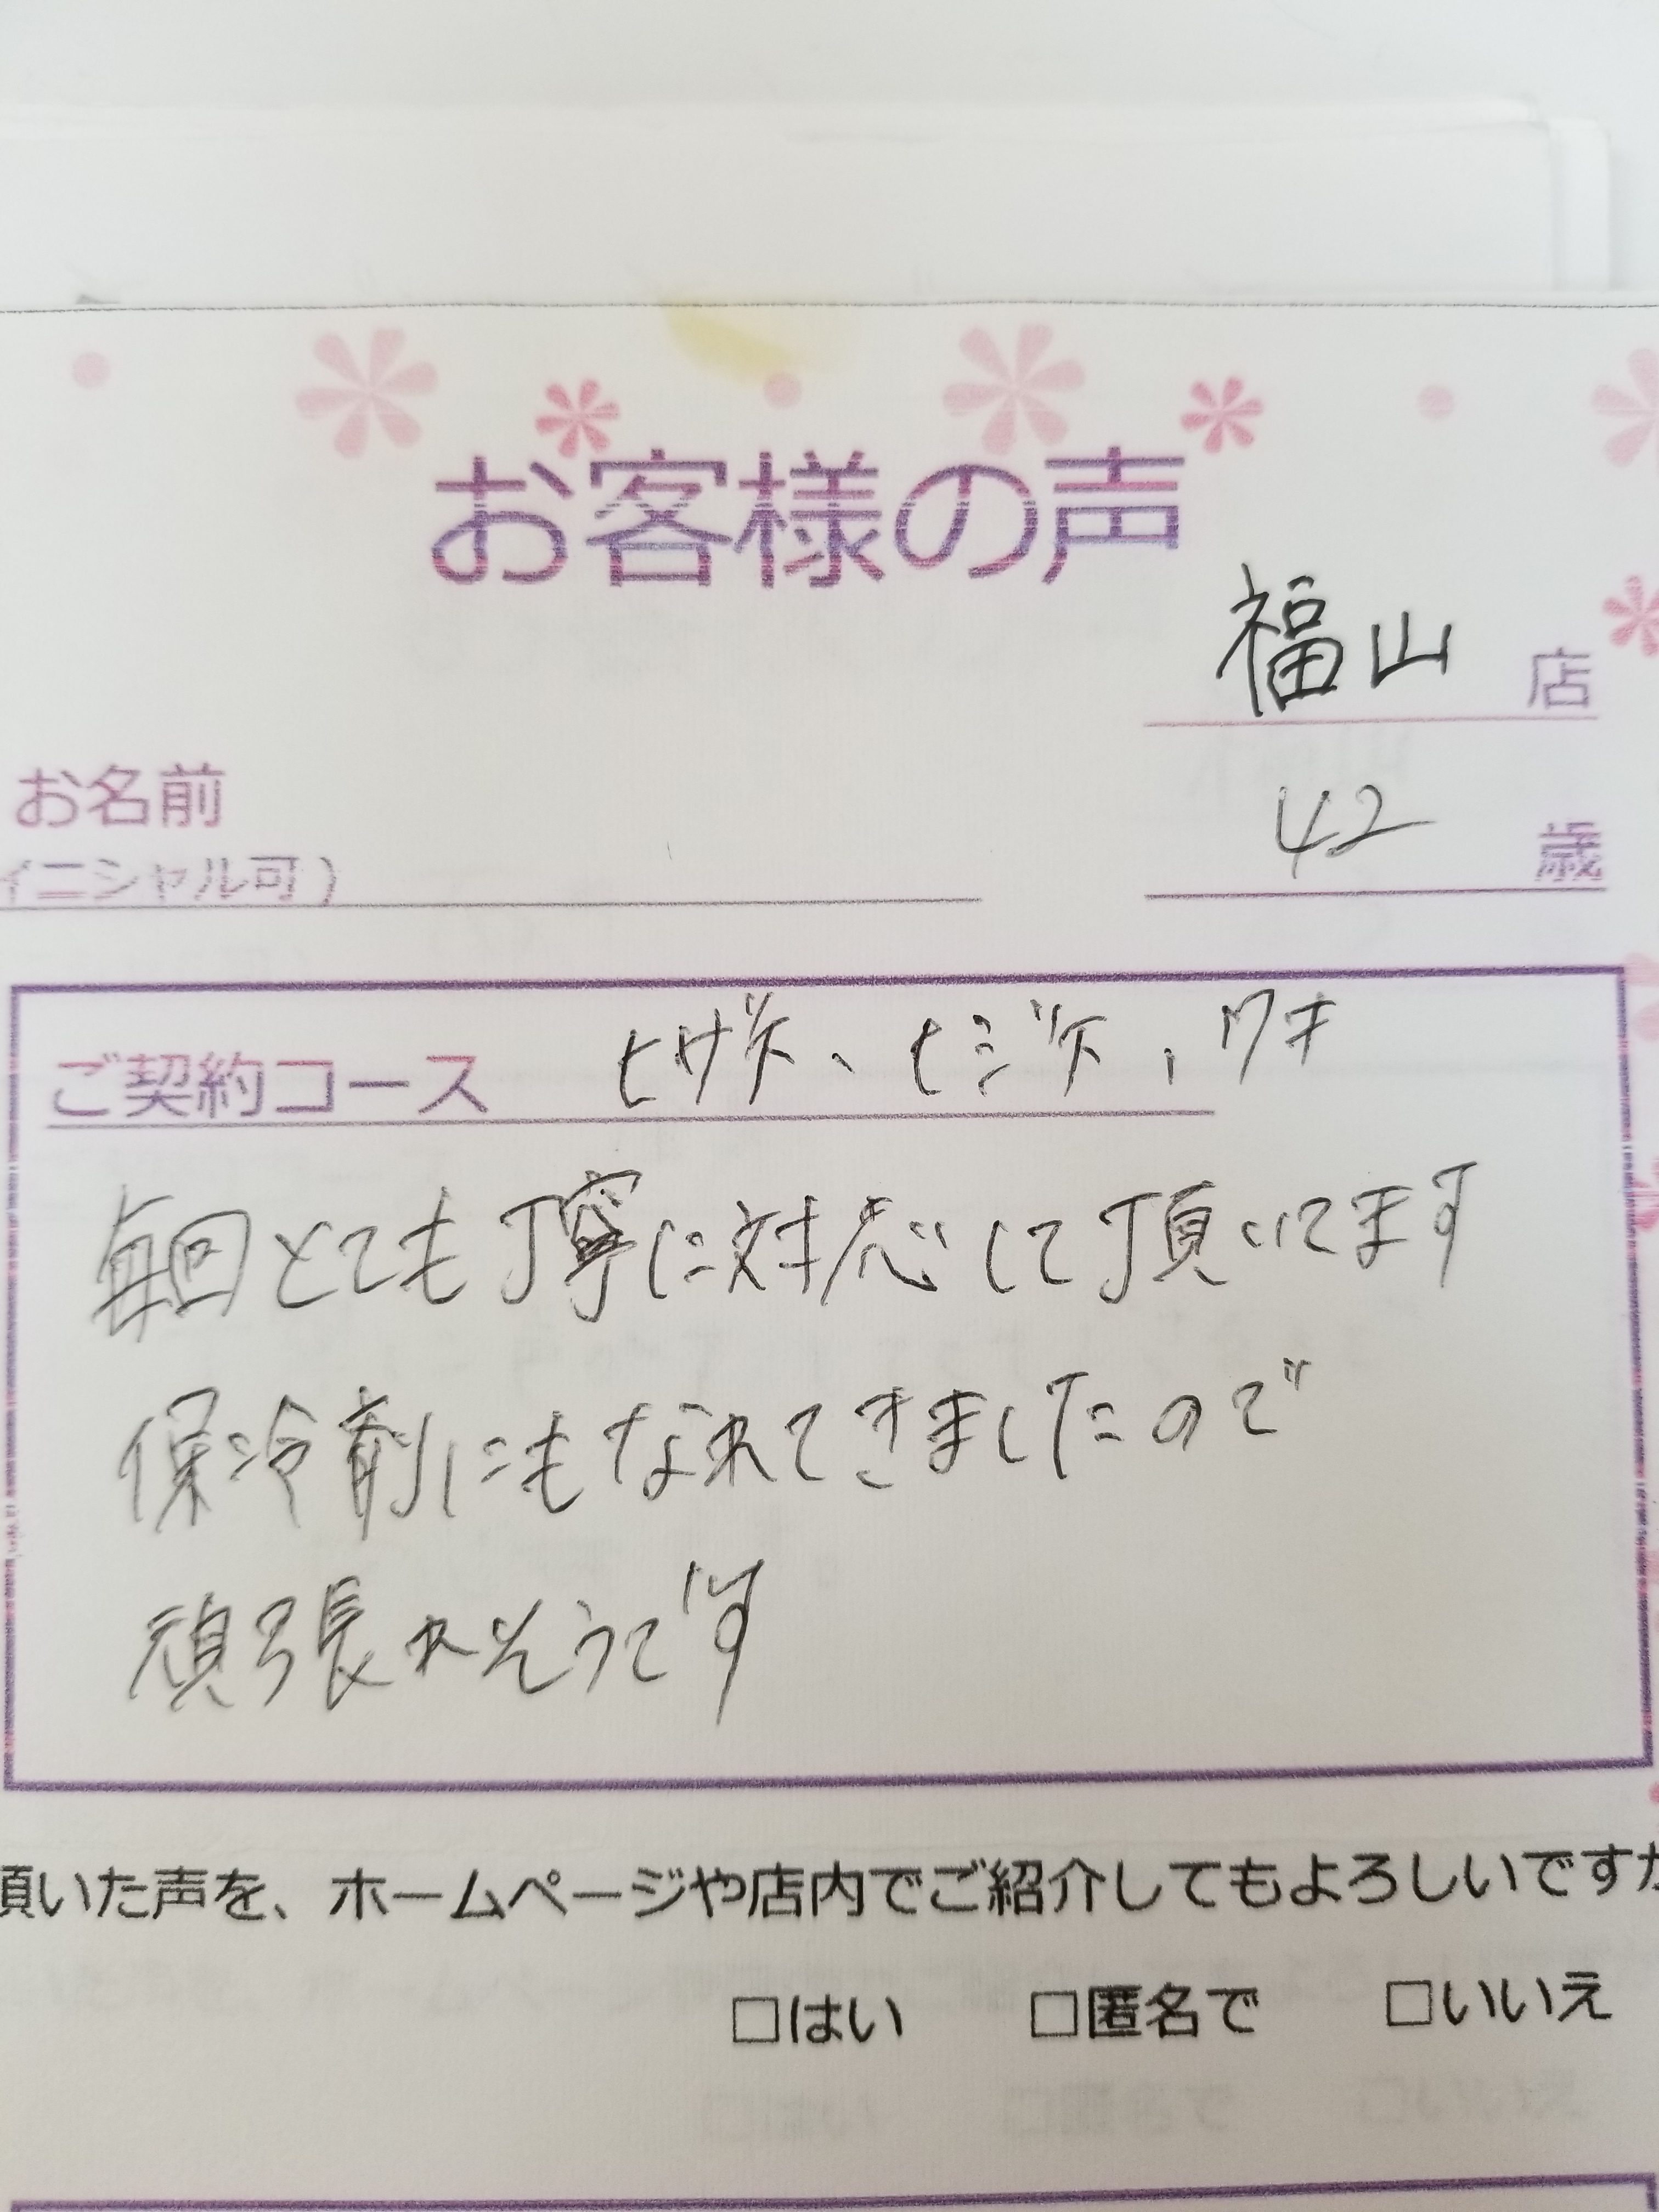 お客様の声
福山 店
お名前
イニシャル可)
42 歳
ご契約コース ヒザ下、ヒジ下、ワキ
毎回とても丁寧に対応して頂いてます
保冷剤にもなれてきましたので
頑張れそうです
頂いた声を、ホームページや店内でご紹介してもよろしいですか
□はい □匿名で □いいえ